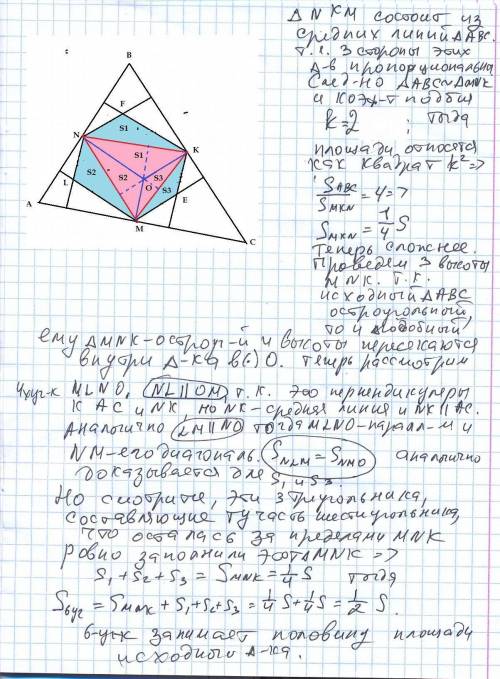 Δ NKM состоит из
средних линий ΔABC.
т.е. 3 стороны этих
Δ-в пропорциональны
След-но ΔABC~ΔMNK
и коэф-т подбия
k=2 ; тогда
площади относятся
как квадрат k²=>
S ABC / S MKN = 4 =>
S MKN = 1/4 S
Теперь сложнее.
Проведем 3 высоты
MNK. т.к.
исходный ΔABC
остроугольный,
то и подобный
ему ΔMNK-остроуг-й и высоты пересекаются
внутри Δ-ка в (·) O. Теперь рассмотрим
4хуг-к MLNO, NL||OM, т.к. это перпендикуляры
к AC и NK, но NK-средняя линия и NK||AC.
Аналогично LM||NO тогда MLNO-паралл-м и
NM-его диагональ. S NLM = S NMO аналогично
доказывается для S₁ и S₃.
Но смотрите, эти 3 треугольника,
составляющие ту часть шестиугольника,
что осталась за пределами MNK
ровно заполнили этот ΔMNK =>
S₁+S₂+S₃ = S MNK = 1/4 S тогда
S 6уг = S MNK + S₁+S₂+S₃ = 1/4 S + 1/4 S = 1/2 S.
6-уг-к занимает половину площади
исходного Δ-ка.
B
F
S1
N
S1
K
S2
S2
S3
O
S3
L
E
A
M
C